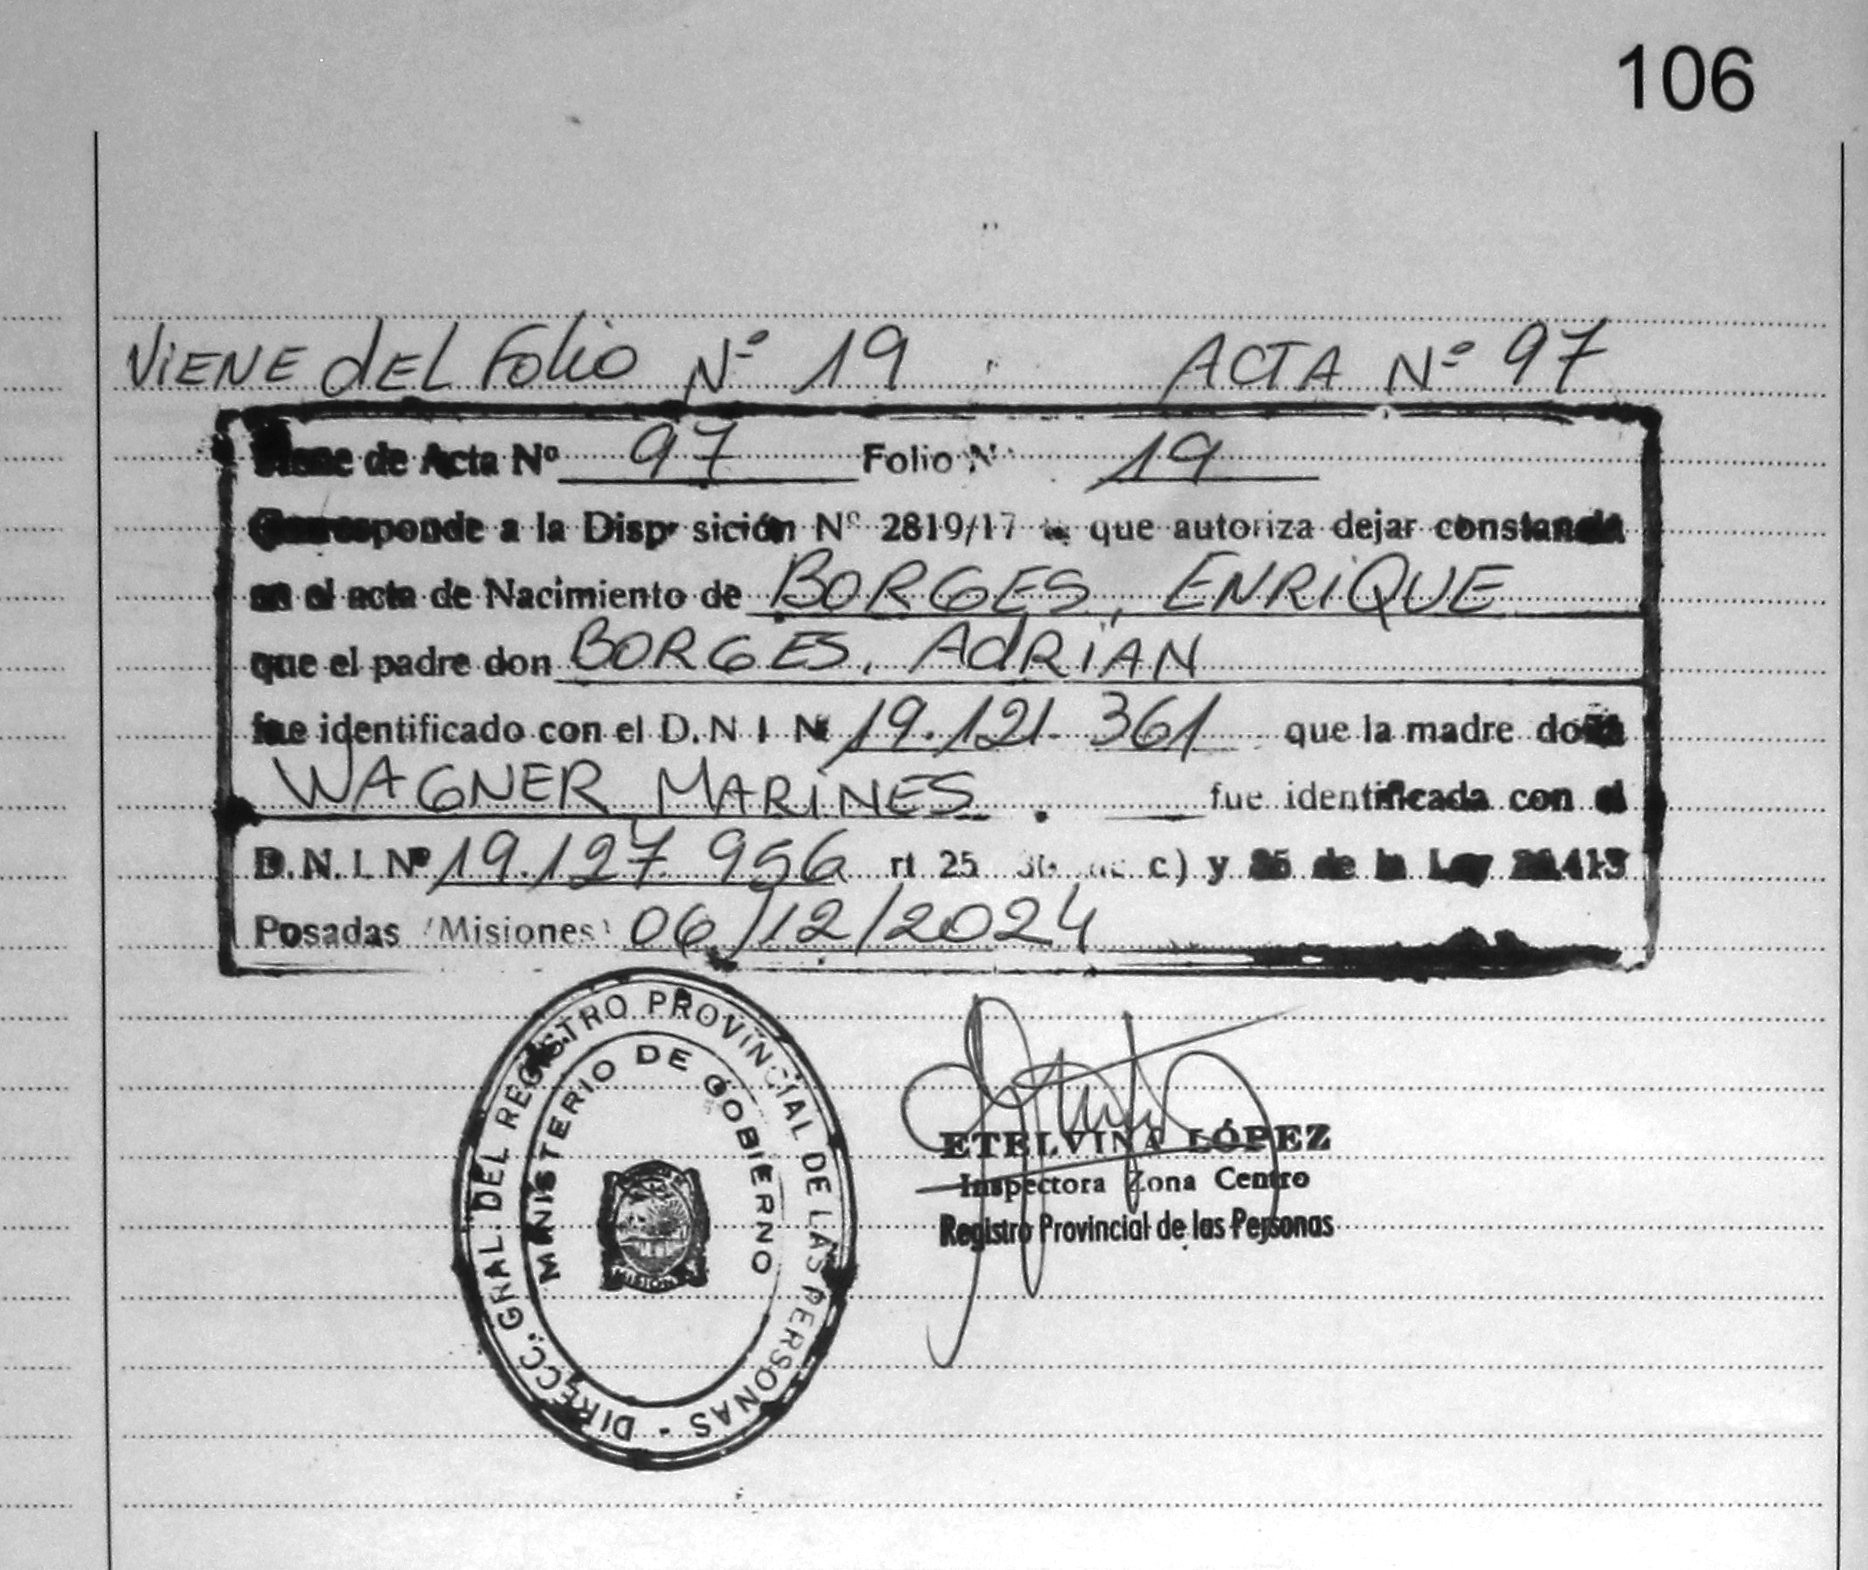 106
ViENE dEL Folio Nº 19 ACTA Nº 97
Viene de Acta Nº 97 Folio Nº 19
Corresponde a la Disposición Nº 2819/17 que autoriza dejar constancia
en el acta de Nacimiento de BORGES, ENRiQUE
que el padre don BORGES, AdRiAN
fue identificado con el D.N I N 19.121.361 que la madre doña
WAGNER MARiNES fue identificada con el
D.N.I.Nº 19.127.956 rt 25 36 c) y 85 de la Ley 26.413
Posadas (Misiones) 06/12/2024
DIRECC. GRAL. DEL REGISTRO PROVINCIAL DE LAS PERSONAS -
MINISTERIO DE GOBIERNO
MISIONES
ETELVINA LÓPEZ
Inspectora Zona Centro
Registro Provincial de las Personas